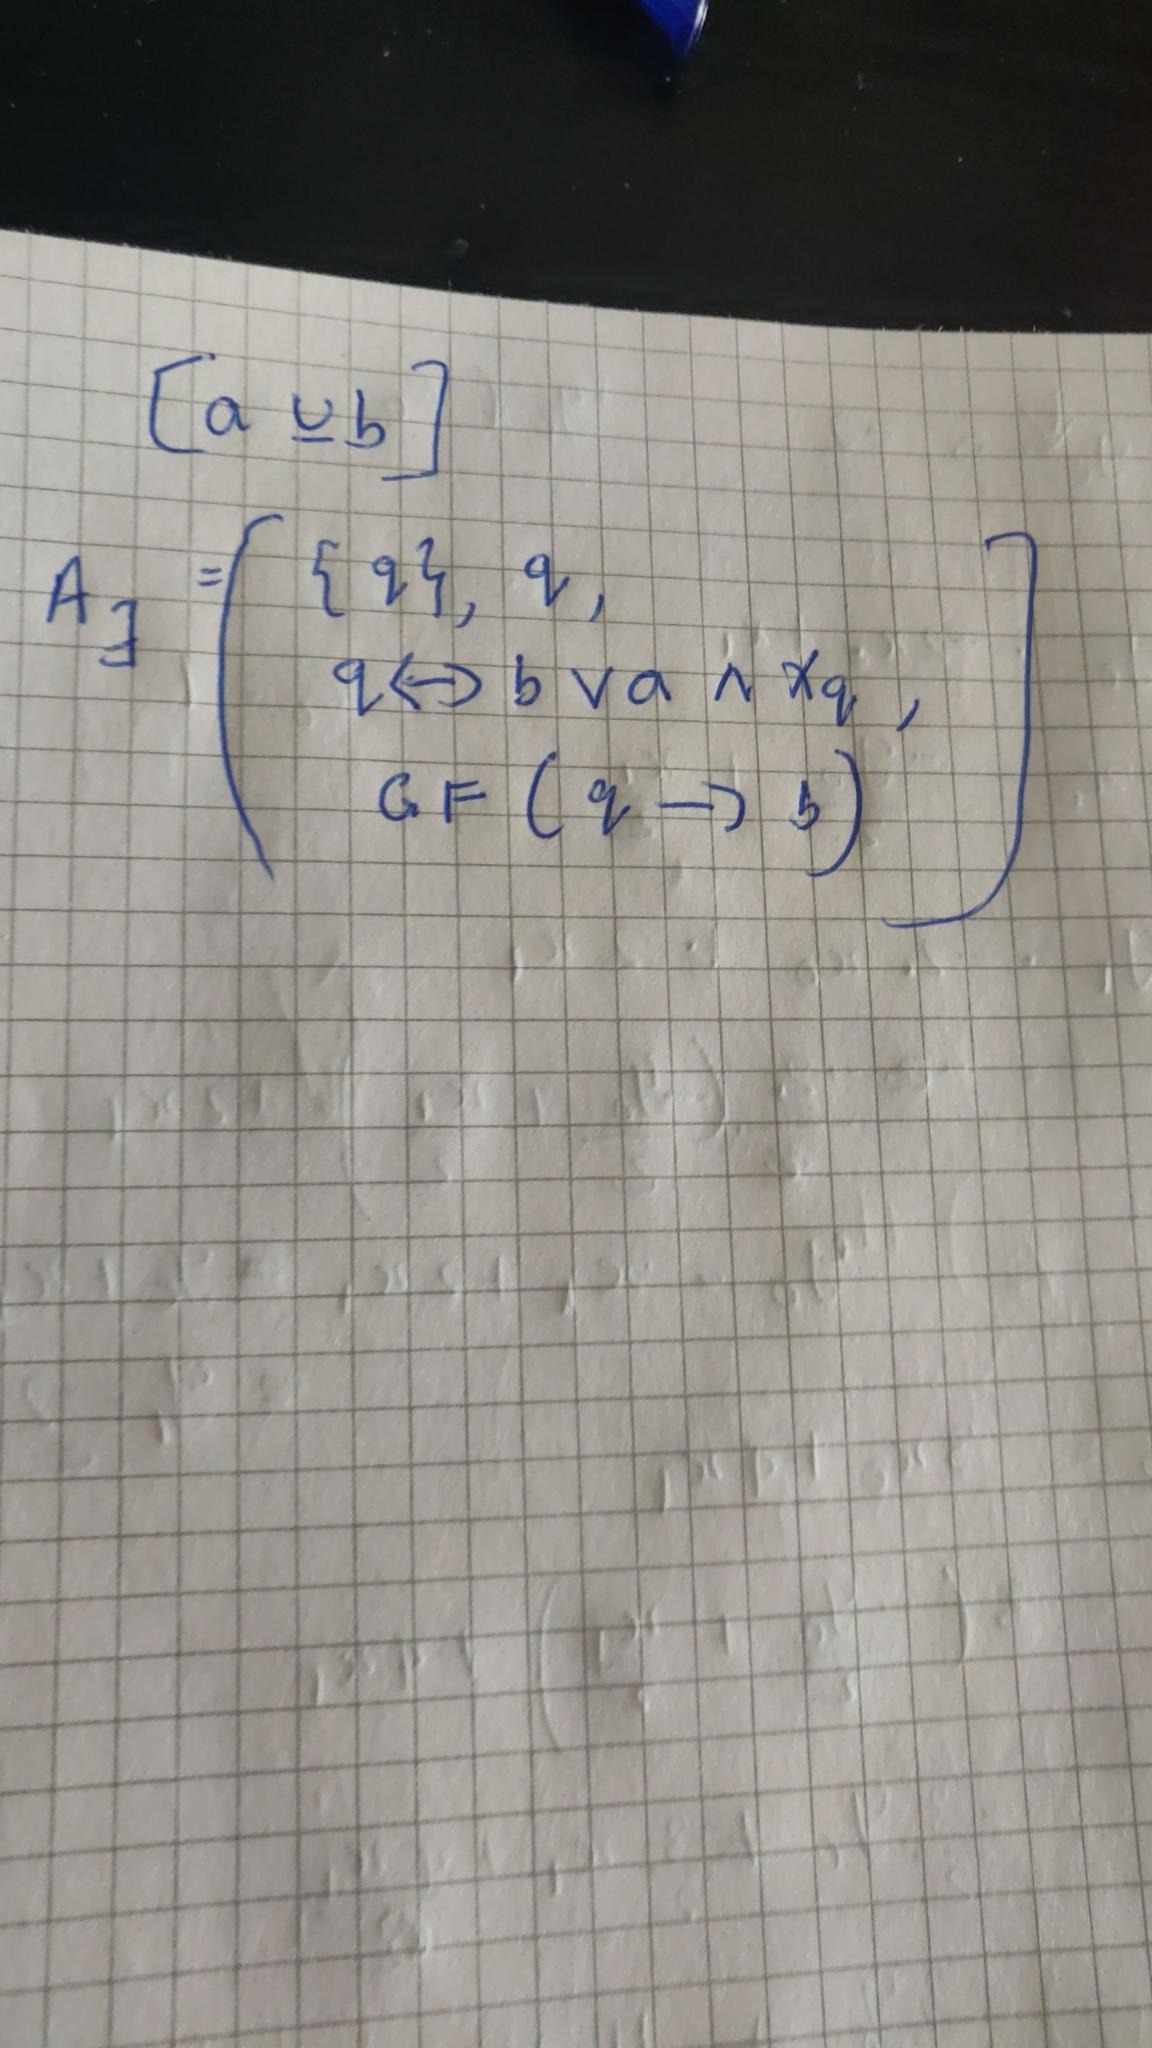 [a U b]
A∃ = ( {q}, q,
q ↔ b ∨ a ∧ Xq,
GF (q → b) )